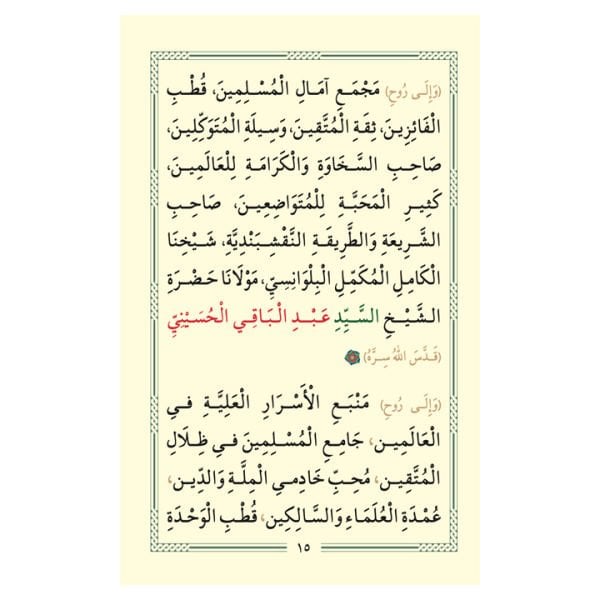 (وَإِلَـى رُوحِ) مَجْمَـعِ آمَـالِ الْمُسْـلِمِينَ، قُطْـبِ
الْفَائِزِيـنَ، ثِقَـةِ الْمُتَّقِيـنَ، وَسِيلَةِ الْمُتَوَكِّلِيـنَ،
صَاحِـبِ السَّـخَاوَةِ وَالْكَرَامَـةِ لِلْعَالَمِيـنَ،
كَثِيـرِ الْمَحَبَّـةِ لِلْمُتَوَاضِعِيـنَ، صَاحِـبِ
الشَّـرِيعَةِ وَالطَّرِيقَـةِ النَّقْشِـبَنْدِيَّةِ، شَـيْخِنَا
الْكَامِلِ الْمُكَمِّلِ الْبِلْوَانِسِيِّ، مَوْلَانَا حَضْـرَةِ
الشَّـيْخِ السَّـيِّدِ عَبْـدِ الْبَاقِـي الْحُسَـيْنِيِّ
(قَـدَّسَ اللهُ سِـرَّهُ)
(وَإِلَـى رُوحِ) مَنْبَـعِ الْأَسْـرَارِ الْعَلِيَّـةِ فـي
الْعَالَمِيـن، جَامِـعِ الْمُسْـلِمِينَ فـي ظِـلَالِ
الْمُتَّقِيـن، مُحِـبِّ خَادِمـي الْمِلَّـةِ وَالدِّيـن،
عُمْـدَةِ الْعُلَمَـاءِ وَالسَّـالِكِين، قُطْـبِ الْوَحْـدَةِ
١٥